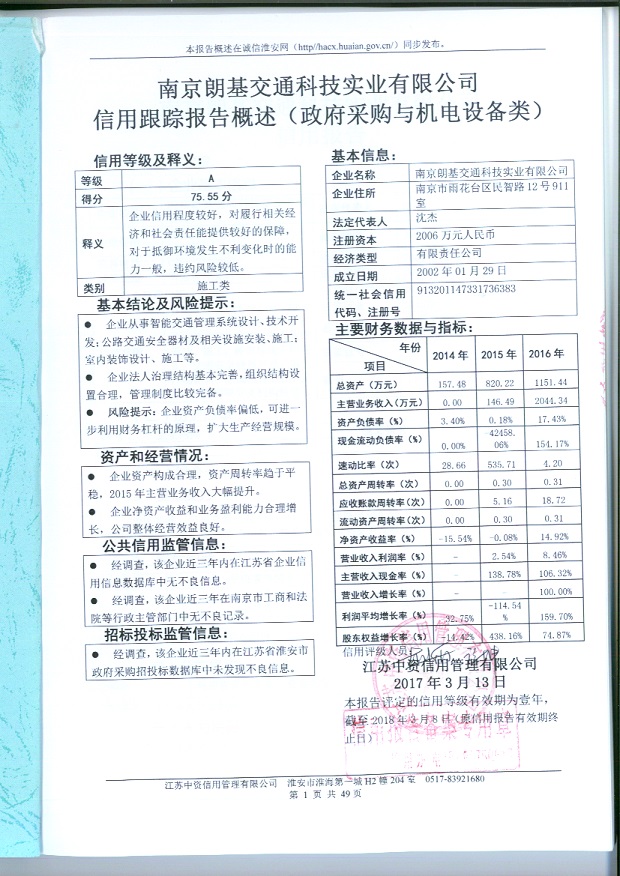 本报告概述在诚信淮安网（http//hacx.huaian.gov.cn/）同步发布。
南京朗基交通科技实业有限公司
信用跟踪报告概述（政府采购与机电设备类）
信用等级及释义：
等级 A
得分 75.55 分
释义 企业信用程度较好，对履行相关经
济和社会责任能提供较好的保障，
对于抵御环境发生不利变化时的能
力一般，违约风险较低。
类别 施工类
基本结论及风险提示：
● 企业从事智能交通管理系统设计、技术开
发；公路交通安全器材及相关设施安装、施工；
室内装饰设计、施工等。
● 企业法人治理结构基本完善，组织结构设
置合理，管理制度比较完备。
● 风险提示：企业资产负债率偏低，可进一
步利用财务杠杆的原理，扩大生产经营规模。
资产和经营情况：
● 企业资产构成合理，资产周转率趋于平
稳，2015 年主营业务收入大幅提升。
● 企业净资产收益和业务盈利能力合理增
长，公司整体经营效益良好。
公共信用监管信息：
● 经调查，该企业近三年内在江苏省企业信
用信息数据库中无不良信息。
● 经调查，该企业近三年在南京市工商和法
院等行政主管部门中无不良记录。
招标投标监管信息：
● 经调查，该企业近三年内在江苏省淮安市
政府采购招投标数据库中未发现不良信息。
基本信息：
企业名称 南京朗基交通科技实业有限公司
企业住所 南京市雨花台区民智路 12 号 911
室
法定代表人 沈杰
注册资本 2006 万元人民币
经济类型 有限责任公司
成立日期 2002 年 01 月 29 日
统一社会信用 913201147331736383
代码、注册号
主要财务数据与指标：
年份 项目 2014 年 2015 年 2016 年
总资产（万元） 157.48 820.22 1151.44
主营业务收入(万元) 0.00 146.49 2044.34
资产负债率（%） 3.40% 0.18% 17.43%
现金流动负债率（%） 0.00% 42458.06% 154.17%
速动比率（次） 28.66 535.71 4.20
总资产周转率（次） 0.00 0.30 0.31
应收账款周转率（次） 0.00 5.16 18.72
流动资产周转率（次） 0.00 0.30 0.31
净资产收益率（%） -15.54% -0.08% 14.92%
营业收入利润率（%） - 2.54% 8.46%
主营收入现金率（%） - 138.78% 106.32%
营业收入增长率（%） - - 100.00%
利润平均增长率（%） -32.75% -114.54% 159.70%
股东权益增长率（%） -14.42% 438.16% 74.87%
信用评级人员：
江苏中资信用管理有限公司
2017 年 3 月 13 日
本报告评定的信用等级有效期为壹年，
截至 2018 年 3 月 8 日（原信用报告有效期终
止日）
江苏中资信用管理有限公司 淮安市淮海第一城 H2 幢 204 室 0517-83921680
第 1 页 共 49 页